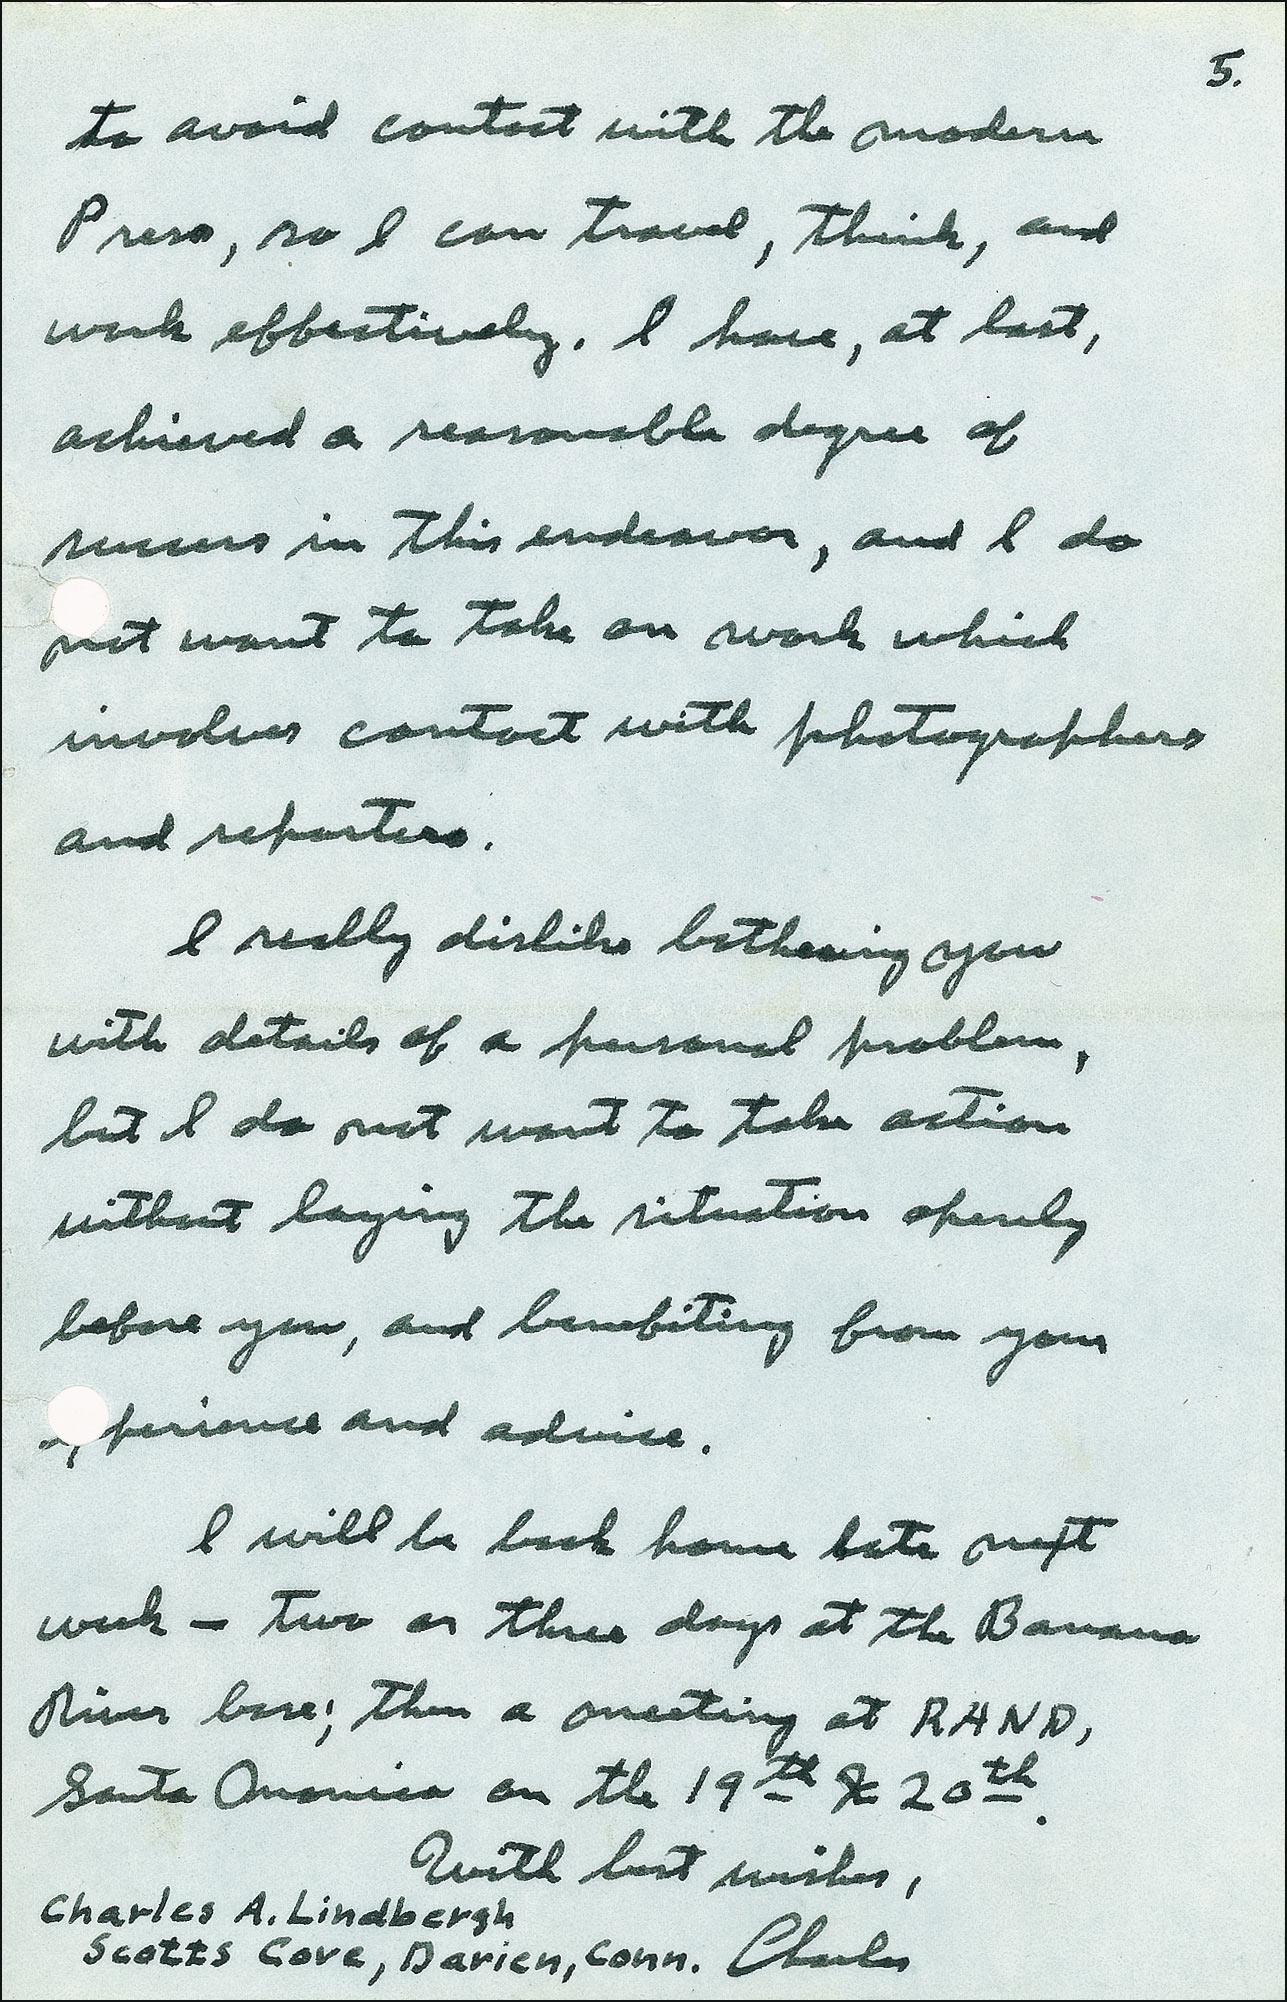 5.
to avoid contact with the modern
Press, so I can travel, think, and
work effectively. I have, at last,
achieved a reasonable degree of
success in this endeavor, and I do
not want to take on work which
involves contact with photographers
and reporters.
I really dislike bothering you
with details of a personal problem,
but I do not want to take action
without laying the situation openly
before you, and benefiting from your
experience and advice.
I will be back home late next
week — two or three days at the Banana
River base; then a meeting at RAND,
Santa Monica on the 19th & 20th.
With best wishes,
Charles A. Lindbergh
Scotts Cove, Darien, Conn. Charles